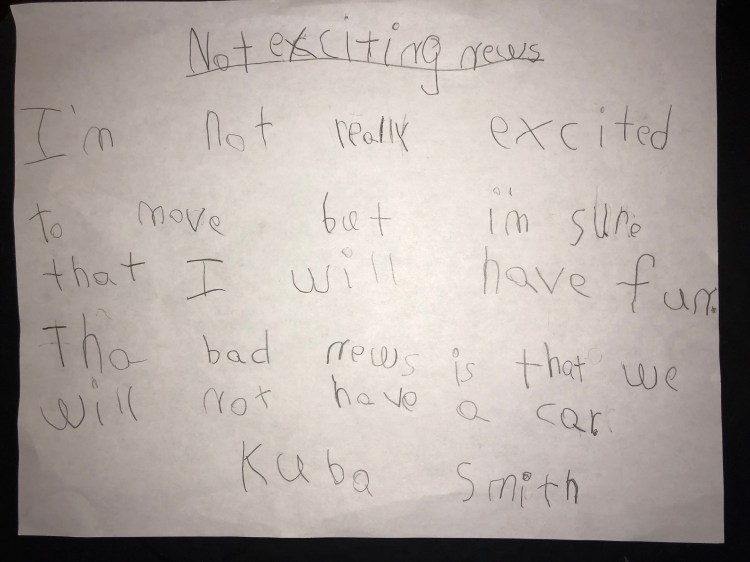 Not exciting news
I'm not really excited
to move but i'm sure
that I will have fun.
Tha bad news is that we
will not have a car.
Kuba Smith